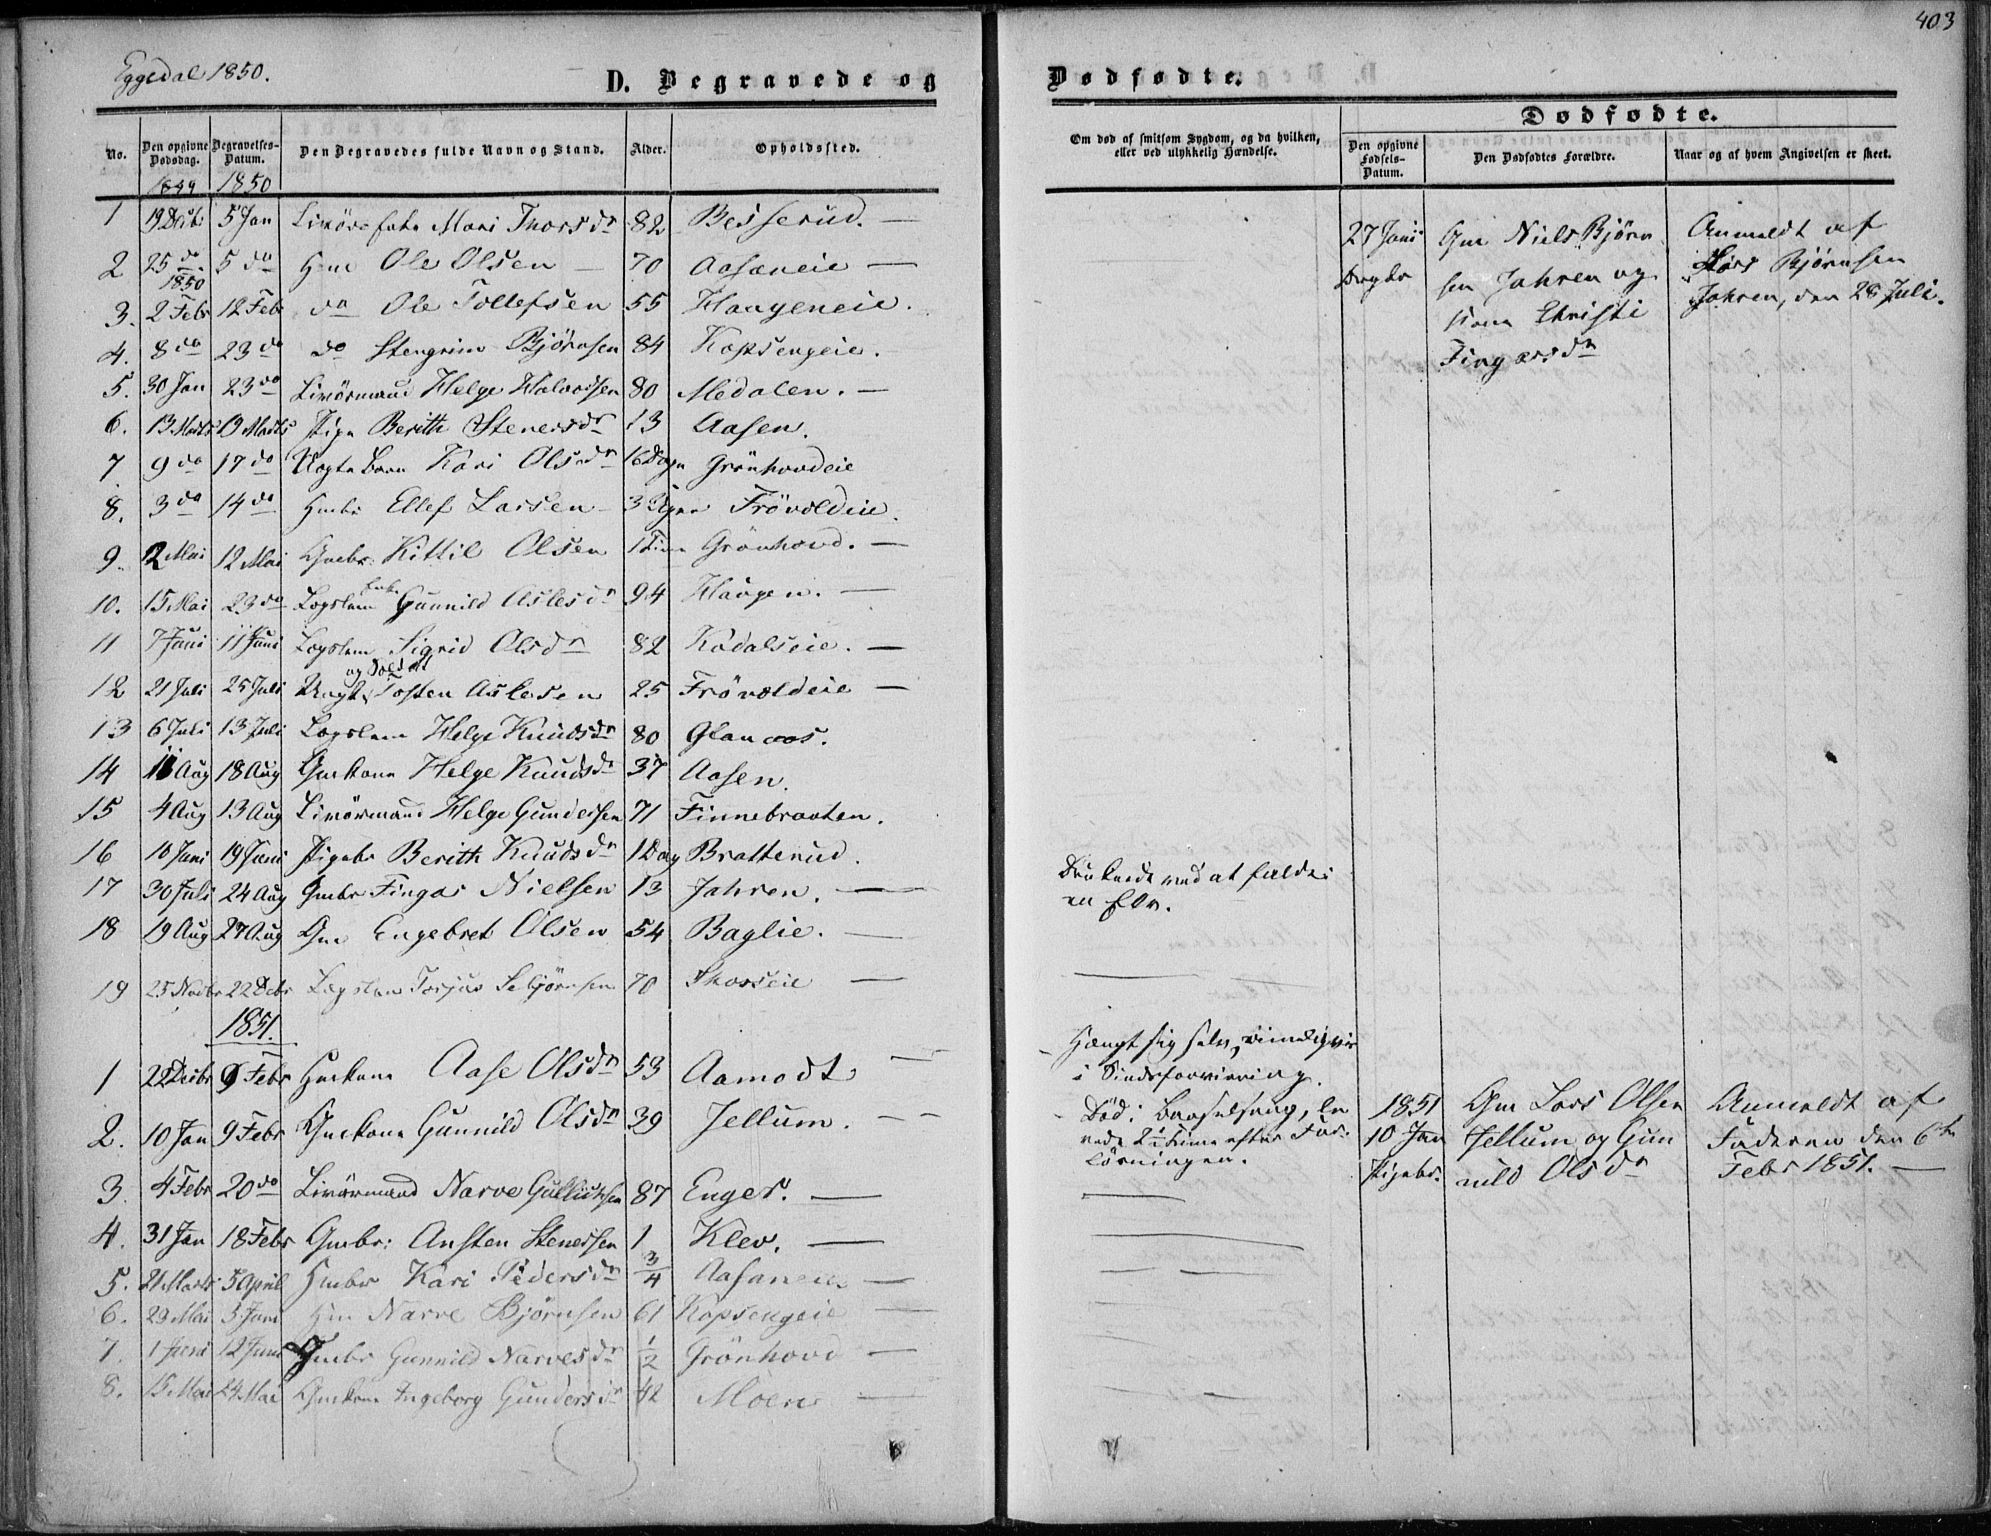 403
Eggedal 1850.
D. Begravede og
Dødfødte.
No. Den opgivne Dødsdag. Begravelses-Datum. Den Begravedes fulde Navn og Stand. Alder. Opholdssted.
1849 1850
1 19 Decb 5 Jan Mari Thorsdr 82 Besserud. —
2 25 do 5 do Ole Olsen — 70 Aasaneie —
1850
3. 2 Febr 12 Febr do Ole Tollefsen 55 Haugeneie.
4. 8 do 23 do do Stengrim Björnsen 84 Kopsengeie.
5. 30 Jan 23 do Livörmand Helge Halvorsen 80 Medalen. —
6. 13 Marts 19 Marts Pige Berith Stenersdr 13 Aasen.
7 9 do 17 do Uægte Barn Kari Olsdr 16 Dage Grönhovdeie
8. 3 do 14 do Ellef Larsen — 3 Uger Frövoldeie.
9. 2 Mai 12 Mai Gmbr: Kittil Olsen 1 Time Grönhovd. —
10. 15 Mai 23 do Lægslem Enke Gunnild Aslesdr 94 Haugen. —
11 7 Juni 11 Juni Lægslem Sigrid Olsdr 82 Kadalseie. —
12 21 Juli 25 Juli og Soldat Tosten Aslesen 25 Frövoldeie —
13 6 Juli 13 Juli Lægslem Helge Knudsdr 80 Glanaas.
14 11 Aug 18 Aug Gmkone Helge Knudsdr 37 Aasen.
15 4 Aug 13 Aug Livörmand Helge Gundersen 71 Finnebraaten.
16 10 Juni 19 Juni Pigebr Berith Knudsdr 1 Dag Bratterud.
17 30 Juli 24 Aug Gmbr Fingar Nielsen 13 Jahren. —
18 19 Aug 27 Aug Gm Engebret Olsen 54 Baglie. —
19 25 Novbr 22 Decbr Lægslem Torjus Sebjörnsen 70 Skarseie —
1851.
1 22 Decbr 9 Febr Hmkone Aase Olsdr 53 Aamodt —
2. 10 Jan 9 Febr Gmkone Gunnild Olsdr 39 Jellum. —
3 4 Febr 20 do Livörmand Narve Gulliksen 87 Enger. —
4. 31 Jan 18 Febr Gmbr: Ansten Stenersen 1 Klev. —
5. 21 Marts 5 April Hmbr Kari Pedersdr 3/4 Aasaneie —
6. 29 Mai 3 Juni Hm Narve Björnsen 61 Kopsengeie —
7. 1 Juni 12 Juni Gmbr Gunnild Narvesdr 1/2 Grönhovd —
8. 15 Mai 24 Mai Gmkone Ingeborg Gundersdr 42 Moen —
Om død af smitsom Sygdom, og da hvilken,
eller ved ulykkelig Hændelse.
Dødfødte.
Den opgivne Fødsels-Datum. Den Dødfødtes Forældre. Naar og af hvem Angivelsen er skeet.
27 Juni
Drgbr
Gm Niels Björn
sen Jahren og
Kone Christi
Fingarsdr
Anmeldt af
Lars Björnsen
Jahren, den 28 Juli.
Druknede ved at falde i
en Elv.
Hængt sig selv, rimeligvis
i Sindsforvirring.
Död i Barselseng, le
vede 2 Time efter For-
lösningen.
1851
10 Jan
Pigebr.
Gm Lars Olsen
Jellum og Gun
nild Olsdr
Anmeldt af
Faderen den 6te
Febr 1851. —